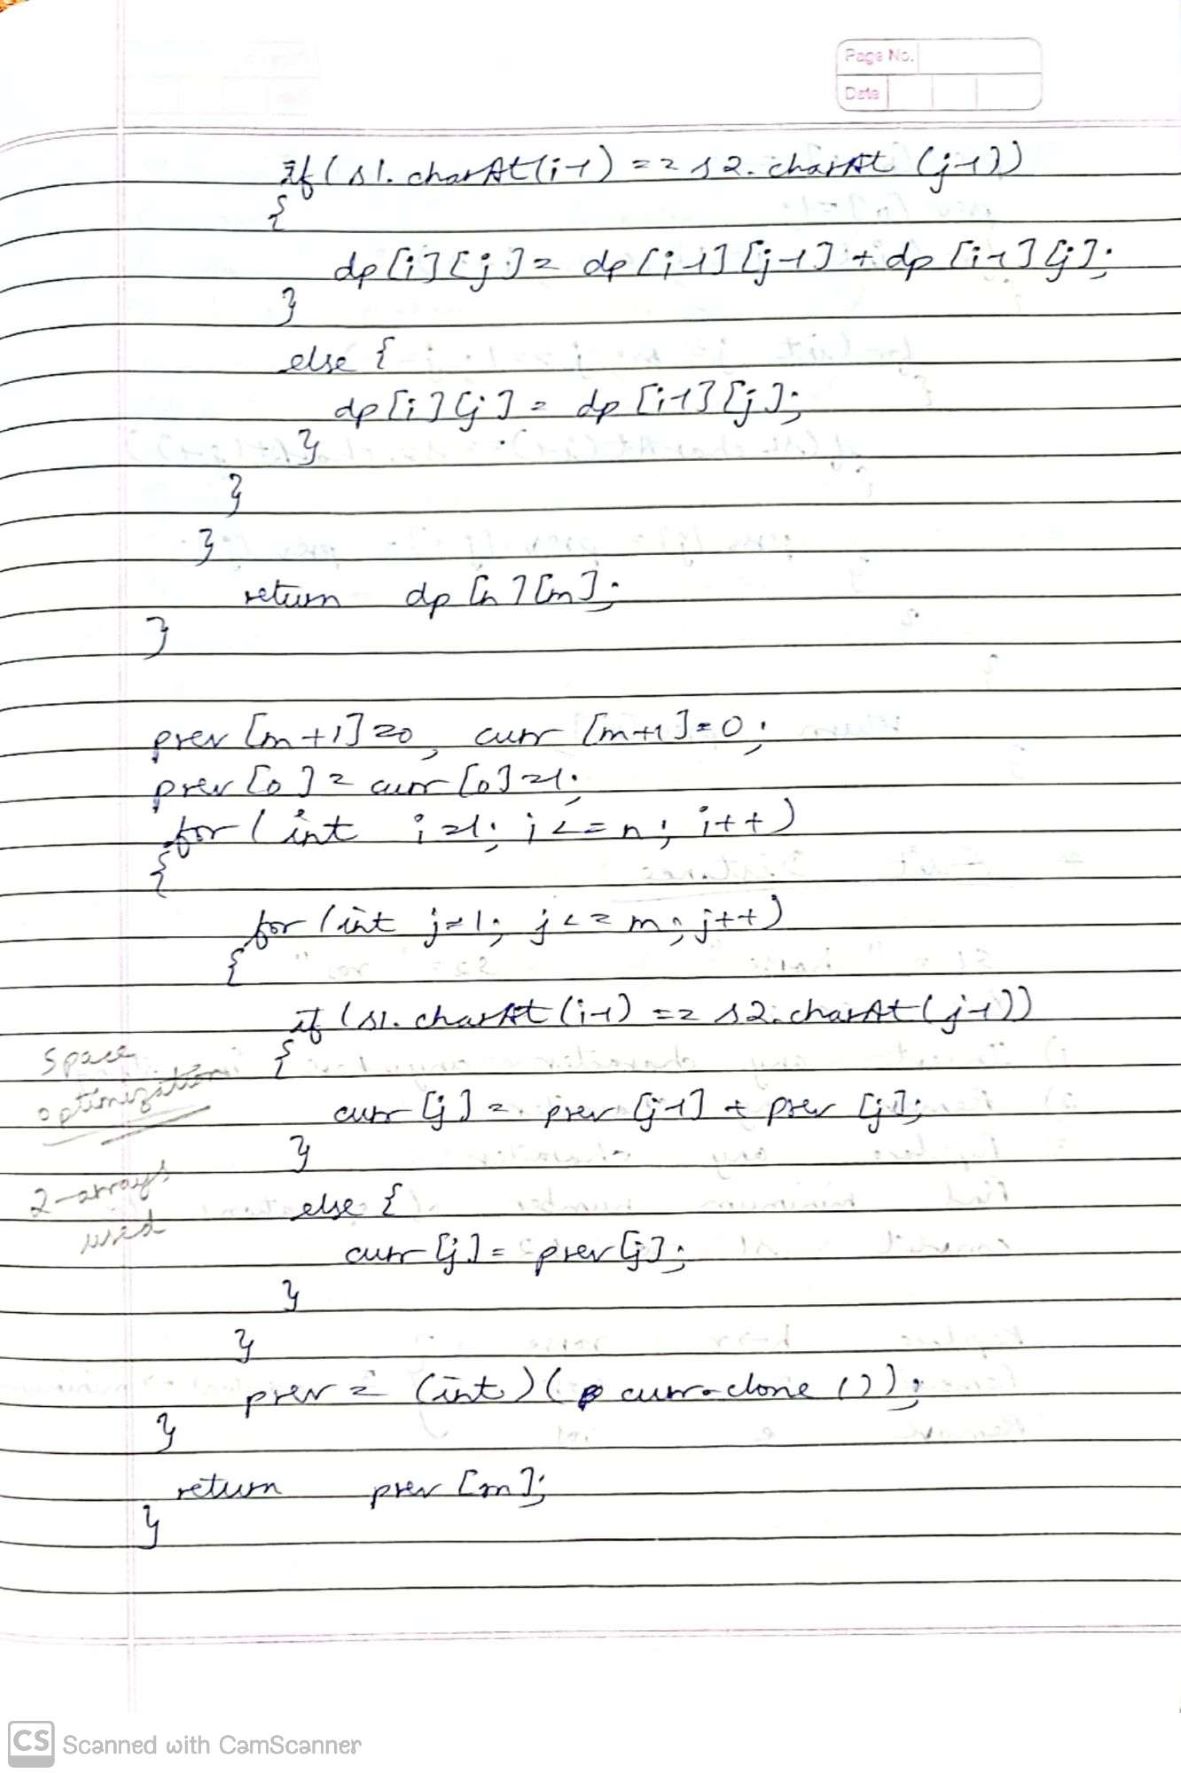 Page No.
Date
if (s1.charAt(i-1) == s2.charAt (j-1))
{
dp[i][j] = dp[i-1][j-1] + dp[i-1][j];
}
else {
dp[i][j] = dp[i-1][j];
}
}
}
return dp[n][m];
}
prev [m+1]=0, curr [m+1]=0;
prev [0] = curr [0]=1;
for (int i=1; i<=n; i++)
{
for (int j=1; j<=m; j++)
{
if (s1.charAt (i-1) == s2.charAt(j-1))
{
curr [j] = prev [j-1] + prev [j];
}
else {
curr [j] = prev[j];
}
}
prev = (int) (curr.clone ());
}
return prev [m];
}
space
optimization
2-arrays
used
CS Scanned with CamScanner